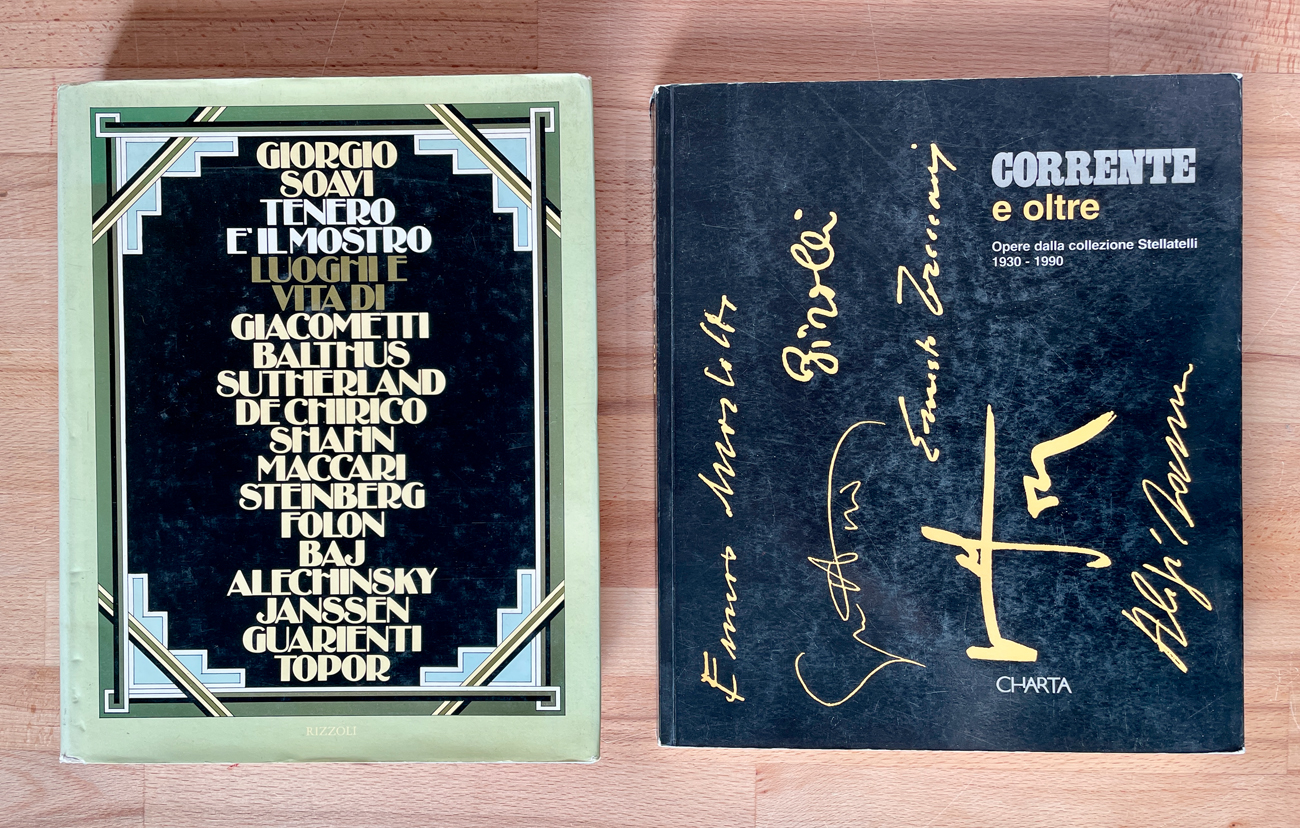 GIORGIO
SOAVI
TENERO
E' IL MOSTRO
LUOGHI E
VITA DI
GIACOMETTI
BALTHUS
SUTHERLAND
DE CHIRICO
SHAHN
MACCARI
STEINBERG
FOLON
BAJ
ALECHINSKY
JANSSEN
GUARIENTI
TOPOR
RIZZOLI
CORRENTE
e oltre
Opere dalla collezione Stellatelli
1930 - 1990
Ennio Morlotti
Birolli
Ernesto Treccani
CHARTA